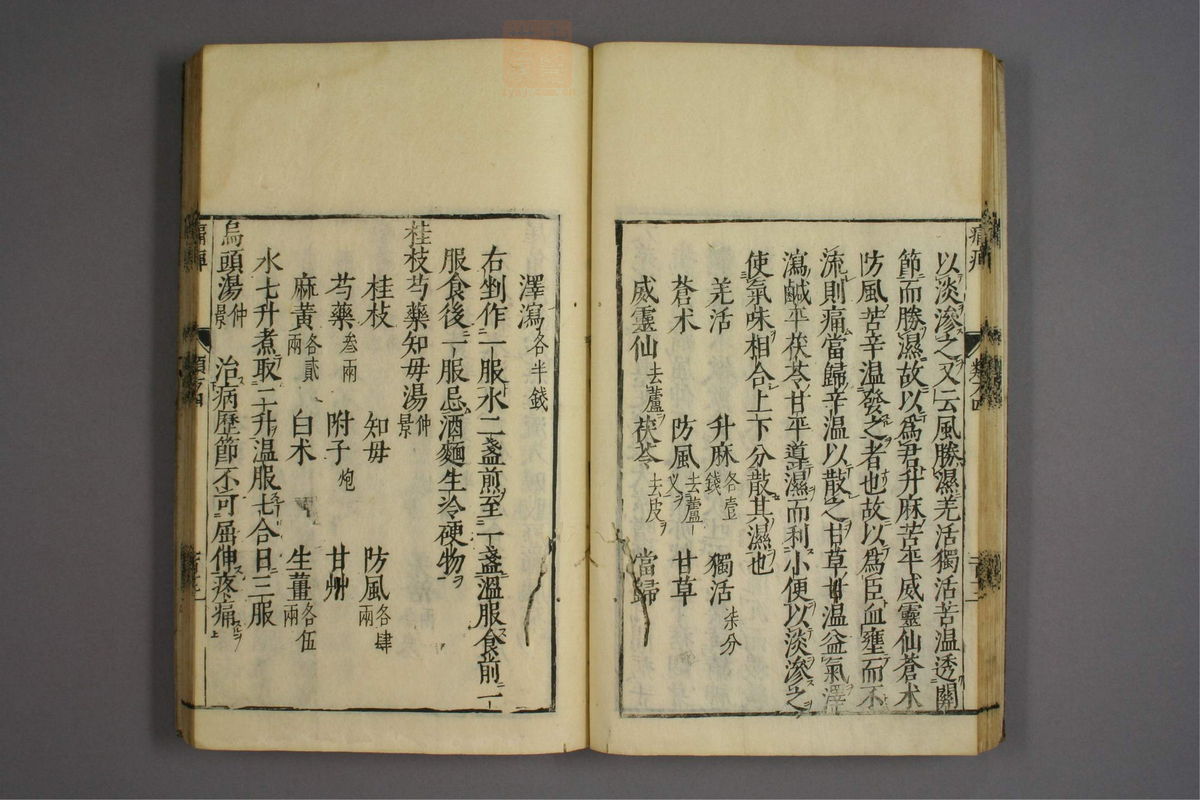 以淡滲之又云風勝濕羌活獨活苦温透關
節而勝濕故以爲君升麻苦平威靈仙蒼朮
防風苦辛温發之者也故以爲臣血壅而不
流則痛當歸辛温以散之甘草甘温益氣澤
瀉鹹平茯苓甘平導濕而利小便以淡滲之
使氣味相合上下分散其濕也
羌活 升麻各壹錢 獨活柒分
蒼朮 防風去蘆 甘草
威靈仙去蘆 茯苓去皮 當歸
澤瀉各半錢
右剉作一服水二盞煎至一盞溫服食前一
服食後一服忌酒麵生冷硬物
桂枝芍藥知毋湯仲景
桂枝 知毋 防風各肆兩
芍藥叁兩 附子炮 甘艸
麻黄各貳兩 白朮 生薑各伍兩
水七升煮取二升温服七合日三服
烏頭湯仲景 治病歷節不可屈伸疼痛